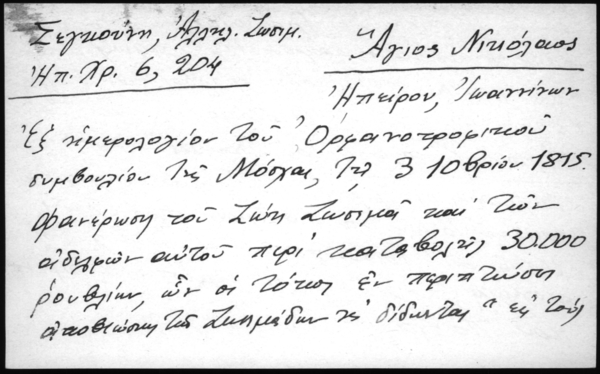 Σεγκούνη, Ἀλληλ. Ζωσιμ.
Ἠπ. Χρ. 6, 204
Ἅγιος Νικόλαος
Ἠπείρου, Ἰωαννίνων
Ἐξ ἡμερολογίου τοῦ Ὀρφανοτροφικοῦ
συμβουλίου τῆς Μόσχας, τῇ 3 10βρίου 1815.
Φανέρωση τοῦ Ζώη Ζωσιμᾶ καὶ τῶν
ἀδελφῶν αὐτοῦ περὶ καταβολῆς 30.000
ρουβλίων, ὧν οἱ τόκοι ἐν περιπτώσει
ἀποβιώσεως τῶν Ζωσιμάδων νὰ δίδωνται "εἰς τοὺς